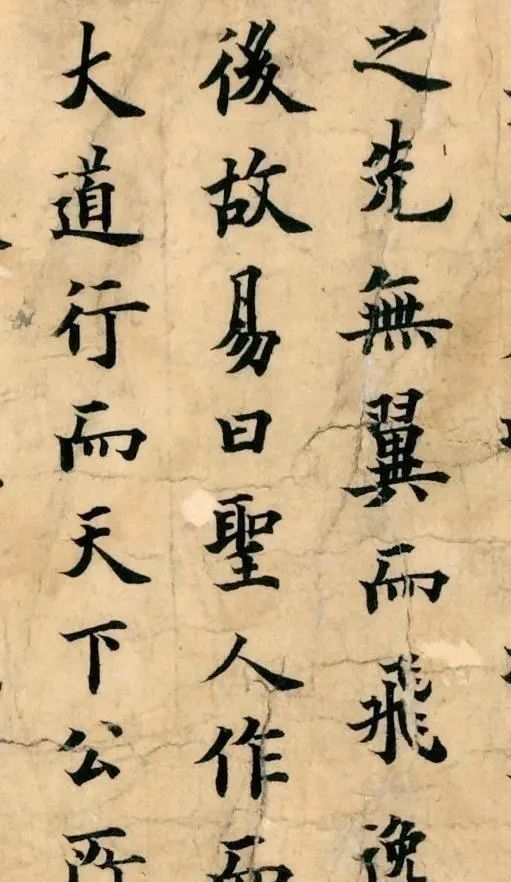 之先無翼而飛逸
後故易曰聖人作而
大道行而天下公所